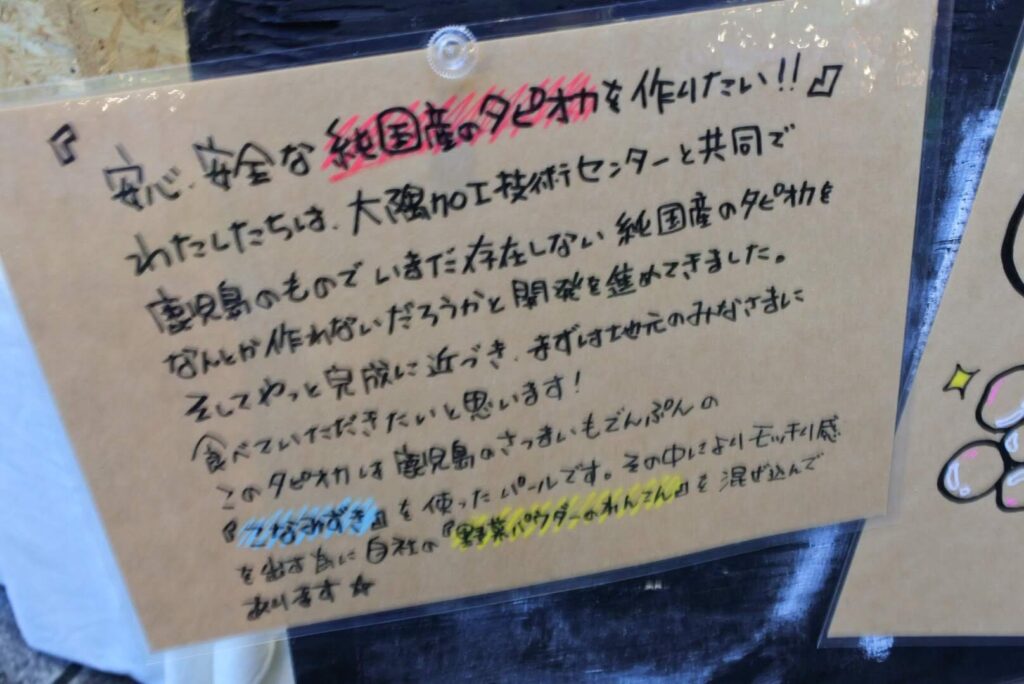 『安心・安全な純国産のタピオカを作りたい!!』
わたしたちは、大隅加工技術センターと共同で
鹿児島のものでいまだ存在しない純国産のタピオカを
なんとか作れないだろうかと開発を進めてきました。
そしてやっと完成に近づき、まずは地元のみなさまに
食べていただきたいと思います!
このタピオカは鹿児島のさつまいもでんぷんの
『こなみずき』を使ったパールです。その中によりモッチリ感
を出す為に自社の『野菜パウダーのれんこん』を混ぜ込んで
あります☆